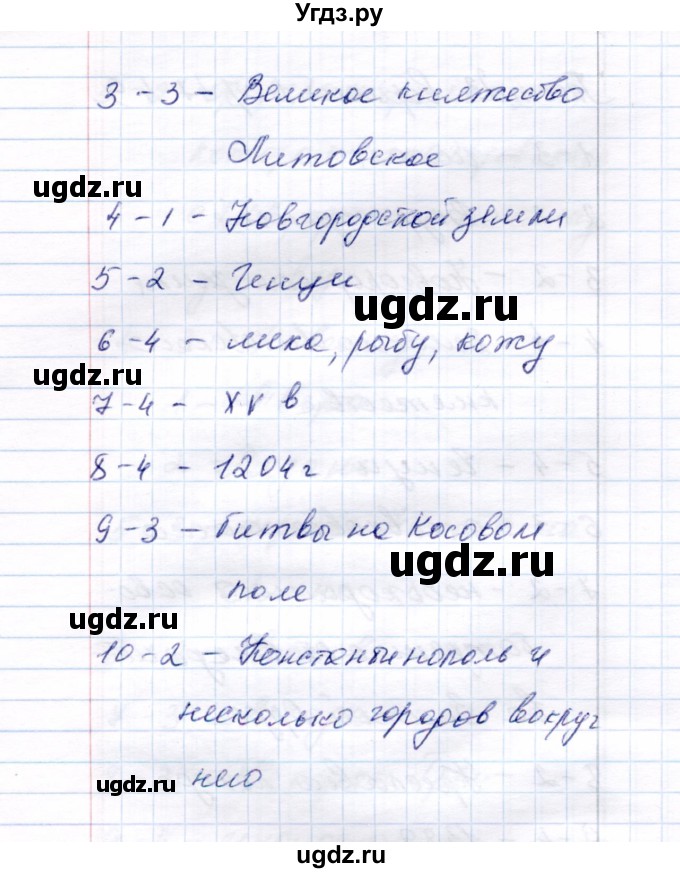 Угдз.ру
3 - 3 - Великое княжество
Литовское
ugdz.ru
4 - 1 - Новгородской земли
5 - 2 - Генуи
ugdz.ru
6 - 4 - меха, рыбу, кожу
ugdz.ru
7 - 4 - XV в
8 - 4 - 1204 г
9 - 3 - Битвы на Косовом
ugdz.ru
поле
ugdz.ru
10 - 2 - Константинополь и
несколько городов вокруг
него
ugdz.ru
ugdz.ru